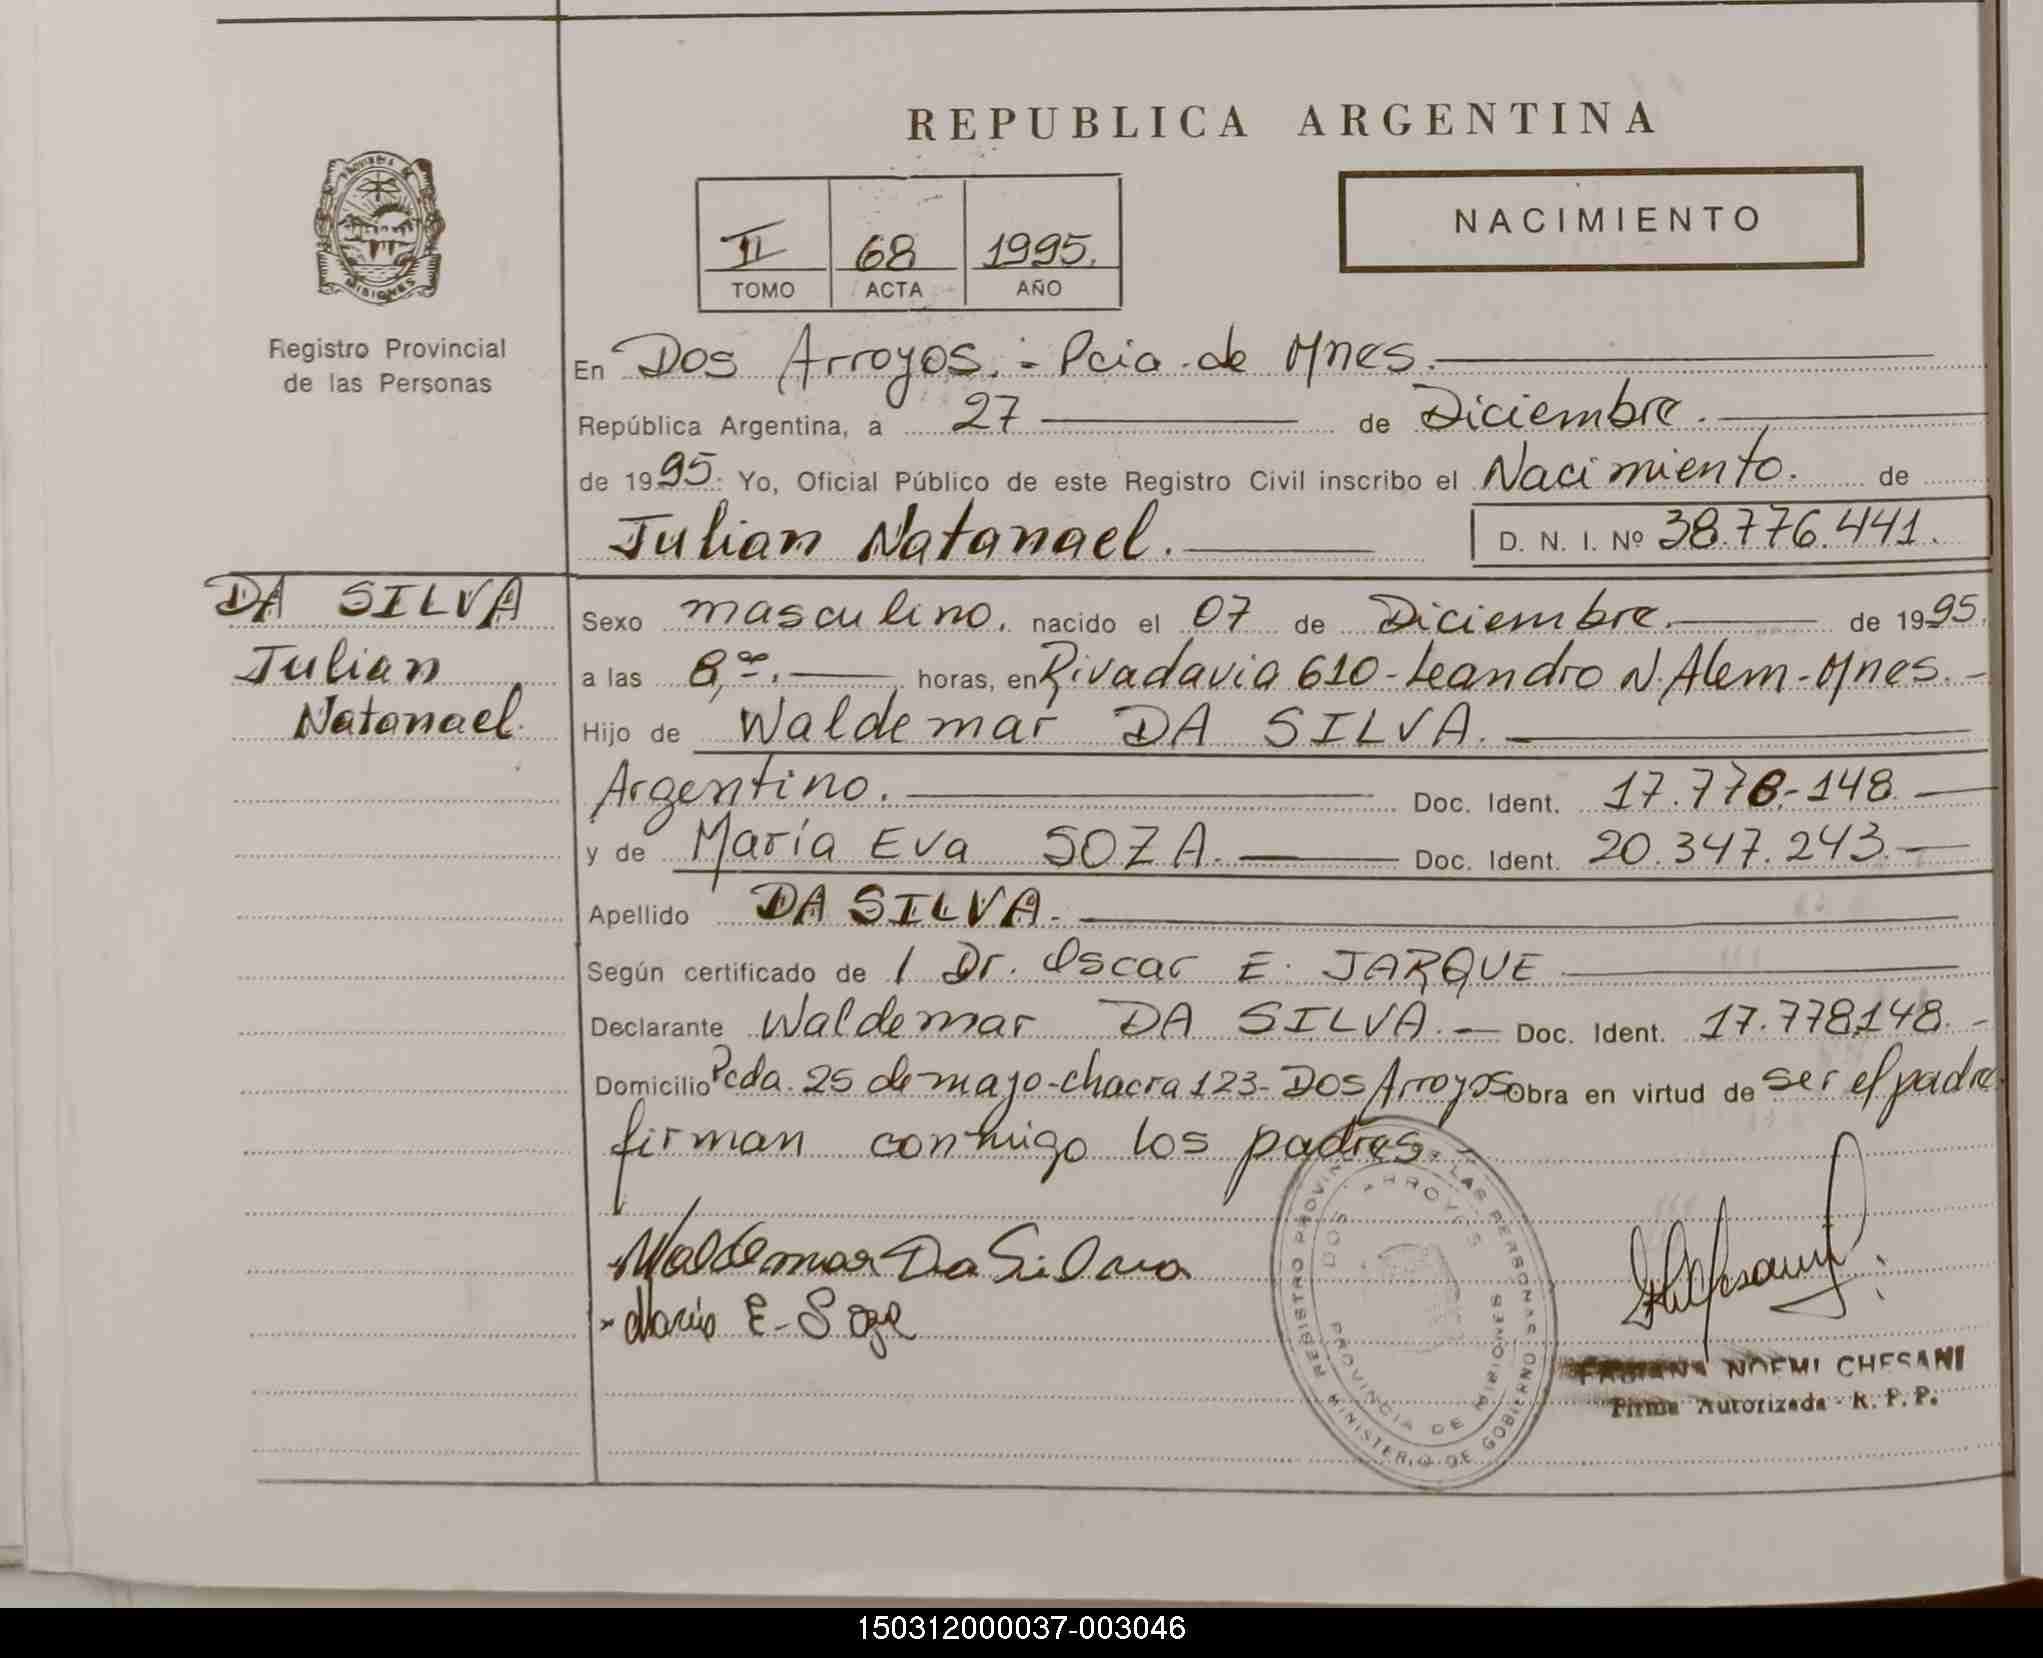 REPUBLICA ARGENTINA
NACIMIENTO
II 68 1995.
TOMO ACTA AÑO
MISIONES
Registro Provincial
de las Personas
En Dos Arroyos.- Pcia. de Mnes.
República Argentina, a 27 de Diciembre.
de 1995. Yo, Oficial Público de este Registro Civil inscribo el Nacimiento. de
Julian Natanael. D. N. I. Nº 38.776.441.
DA SILVA
Julian
Natanael.
Sexo masculino. nacido el 07 de Diciembre. de 1995.
a las 8,00. horas, en Rivadavia 610-Leandro N. Alem-Mnes.-
Hijo de Waldemar DA SILVA.
Argentino. Doc. Ident. 17.778.-148.
y de María Eva SOZA. Doc. Ident. 20.347.243.
Apellido DA SILVA.
Según certificado de / Dr. Oscar E. JARQUE
Declarante Waldemar DA SILVA. Doc. Ident. 17.778.148.-
Domicilio Pcda. 25 de mayo-chacra 123-Dos Arroyos Obra en virtud de ser el padre
firman conmigo los padres.-
Waldemar Da Silva
Maria E. Soza
REGISTRO PROVINCIAL DE LAS PERSONAS
DOS ARROYOS
PROVINCIA DE MISIONES
MINISTERIO DE GOBIERNO
FABIANA NOEMI CHESANI
Firma Autorizada - R. P. P.
150312000037-003046